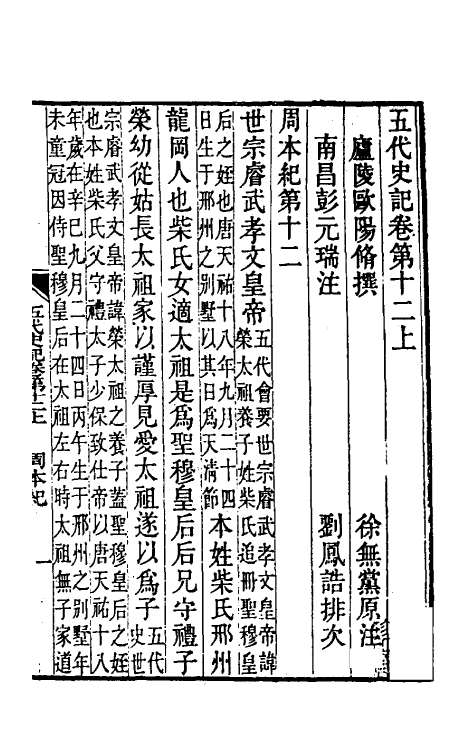 五代史記卷第十二上
廬陵歐陽脩撰 徐無黨原注
南昌彭元瑞注 劉鳳誥排次
周本紀第十二
世宗睿武孝文皇帝
五代會要世宗睿武孝文皇帝諱
榮太祖養子姓柴氏追冊聖穆皇
后之姪也唐天祐十八年九月二十四
日生于邢州之別墅以其日爲天淸節
本姓柴氏邢州
龍岡人也柴氏女適太祖是爲聖穆皇后后兄守禮子
榮幼從姑長太祖家以謹厚見愛太祖遂以爲子
五代
史世
宗睿武孝文皇帝諱榮太祖之養子蓋聖穆皇后之姪
也本姓柴氏父守禮太子少保致仕帝以唐天祐十八
年歲在辛巳九月二十四日丙午生于邢州之別墅年
未童冠因侍聖穆皇后在太祖左右時太祖無子家道
五代史記卷第十二上 周本紀 一